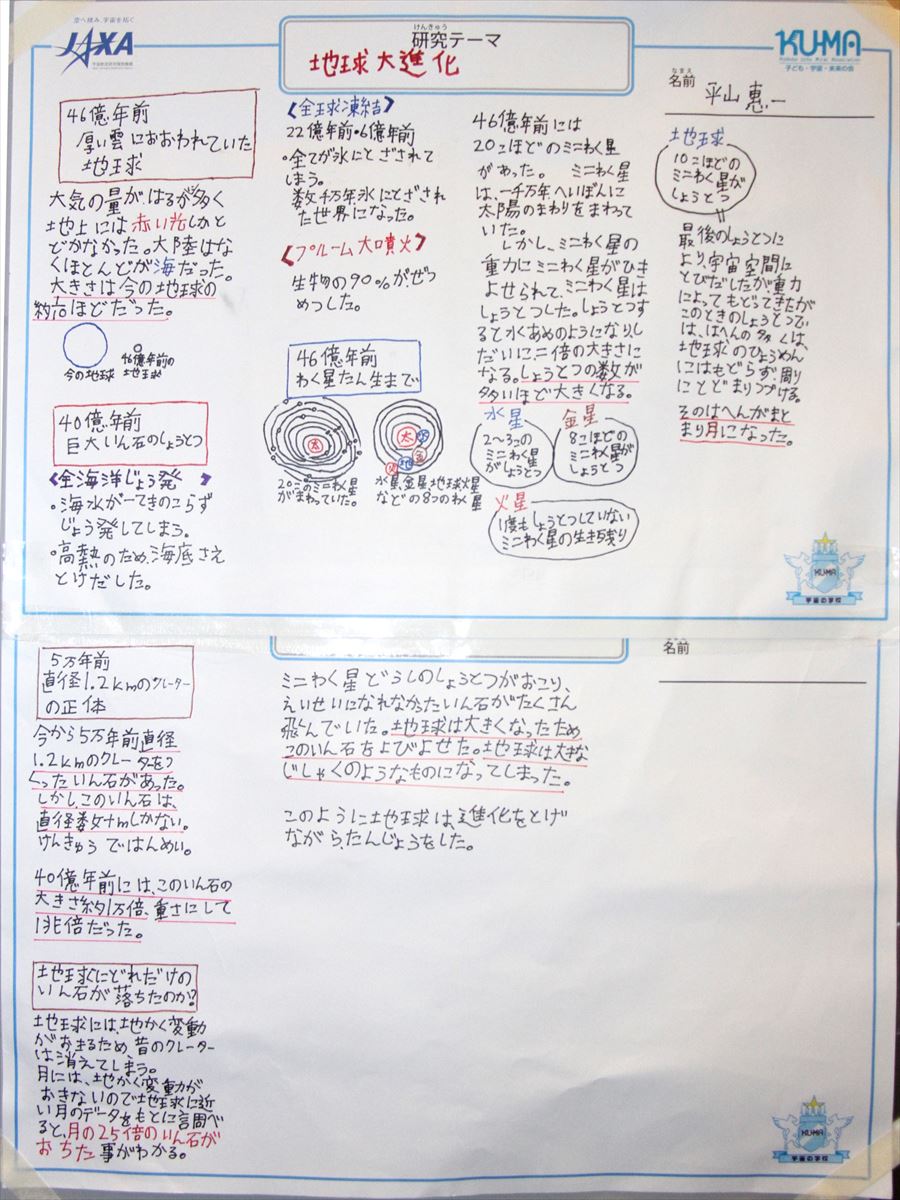 空へ挑み、宇宙を拓く
JAXA
けんきゅう
研究テーマ
地球大進化
KU-MA
子ども・宇宙・未来の会
なまえ
名前
平山 恵一
46億年前
厚い雲におおわれていた
地球
大気の量がはるか多く
地上には赤い光しかと
どかなかった。大陸はな
くほとんどが海だった。
大きさは今の地球の
ほどだった。
今の地球
46億年前の
地球
40億年前
巨大いん石のしょうとつ
全海洋じょう発
・海水が一てきのこらず
じょう発してしまう。
・高熱のため、海底さえ
とけだした。
全球凍結
22億年前・6億年前
・全てが氷にとざされて
しまう。
数千万年氷にとざされ
た世界になった。
プルーム大噴火
生物の90%がぜつ
めつした。
46億年前
わく星たん生まで
太
太
水
金
地
火
20このミニわく星
がまわっていた。
水星、金星、地球、火星
などの8つのわく星
46億年前には
20こほどのミニわく星
があった。 ミニわく星
は、一千万年、へいぼんに
太陽のまわりをまわって
いた。
しかし、ミニわく星の
重力にミニわく星がひき
よせられて、ミニわく星は
しょうとつした。しょうとつす
ると水あめのようになり、し
だいに二倍の大きさに
なる。しょうとつの数が
多いほど大きくなる。
水星
2〜3つの
ミニわく星
がしょうとつ
金星
8こほどの
ミニわく星が
しょうとつ
火星
1度もしょうとつしていない
ミニわく星の生き残り
地球
10こほどの
ミニわく星が
しょうとつ
最後のしょうとつに
より、宇宙空間に
とびだしたが重力
によってもどってきたが
このときのしょうとつで
は、はへんの多くは、
地球のひょうめん
にはもどらず、周り
にとどまりつづける。
そのはへんがまと
まり月になった。
KU-MA
宇宙の学校
名前
5万年前
直径1.2kmのクレーター
の正体
今から5万年前直径
1.2kmのクレーターをつ
くったいん石があった。
しかし、このいん石は、
直径数十mしかない。
けんきゅうではんめい。
40億年前には、このいん石の
大きさ約1万倍、重さにして
1兆倍だった。
地球にどれだけの
いん石が落ちたのか?
地球には、地かく変動
がおきるため、昔のクレーター
は消えてしまう。
月には、地かく変動が
おきないので地球に近
い月のデータをもとに調べ
ると、月の25倍のいん石が
おちた事がわかる。
ミニわく星どうしのしょうとつがおこり、
えいせいになれなかったいん石がたくさん
飛んでいた。地球は大きくなったため
このいん石をよびよせた。地球は大きな
じしゃくのようなものになってしまった。
このように地球は、進化をとげ
ながら、たんじょうをした。
KU-MA
宇宙の学校